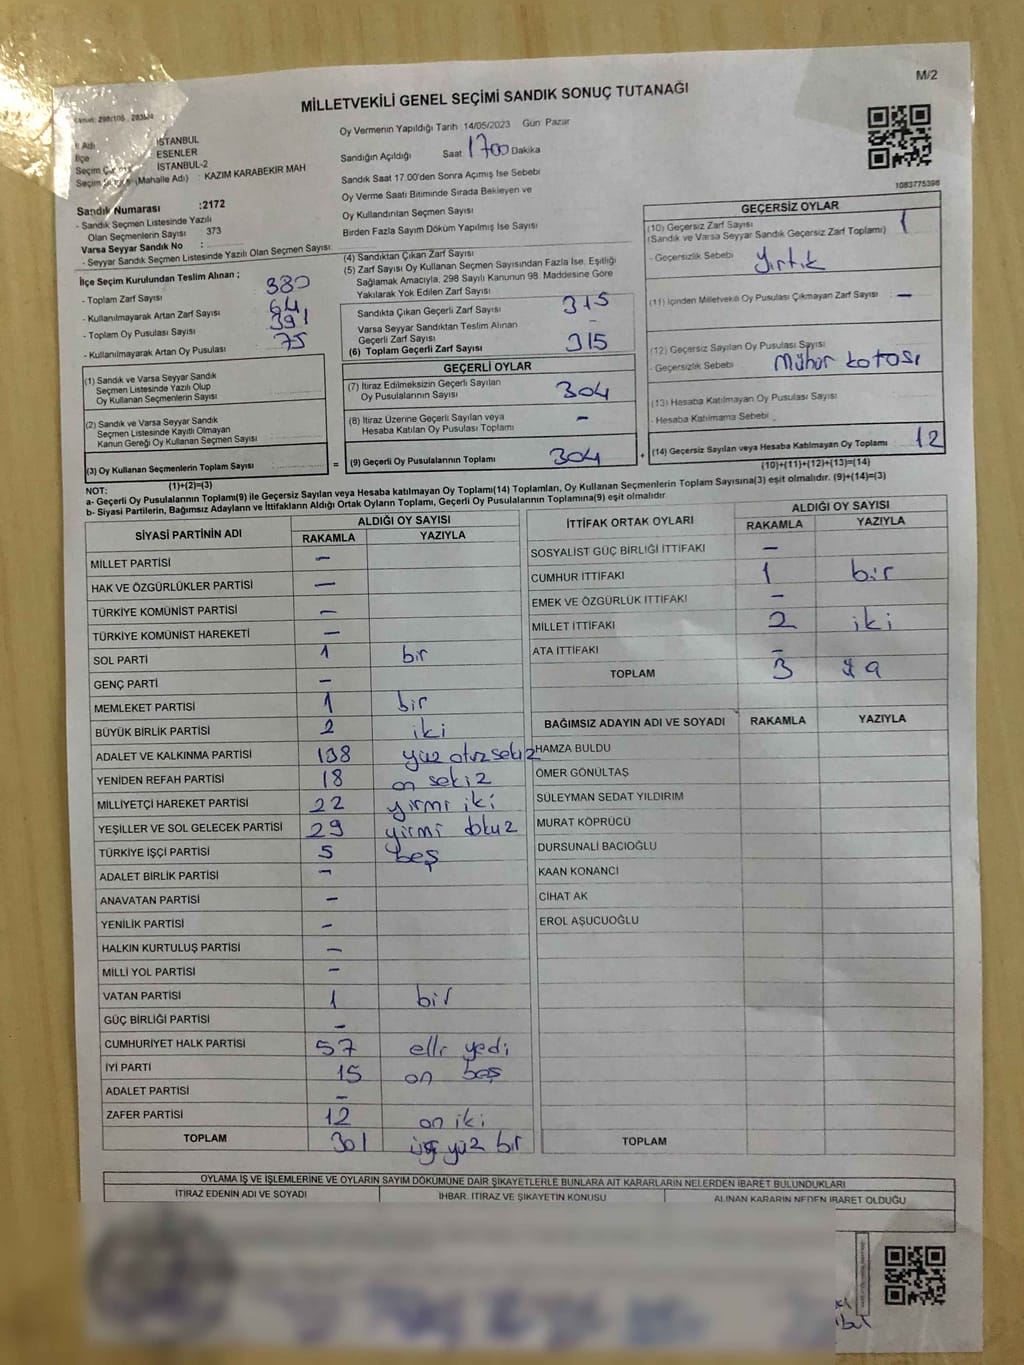 M/2
MİLLETVEKİLİ GENEL SEÇİMİ SANDIK SONUÇ TUTANAĞI
İl Adı : İSTANBUL
İlçe : ESENLER
İSTANBUL-2
(Mahalle Adı) : KAZIM KARABEKİR MAH
Oy Vermenin Yapıldığı Tarih 14/05/2023 Gün: Pazar
Sandığın Açıldığı Saat 1700 Dakika
Sandık Saat 17.00'den Sonra Açımış İse Sebebi
Oy Verme Saati Bitiminde Sırada Bekleyen ve
Oy Kullandırılan Seçmen Sayısı
Birden Fazla Sayım Döküm Yapılmış İse Sayısı
1083775396
Sandık Numarası :2172
- Sandık Seçmen Listesinde Yazılı
Olan Seçmenlerin Sayısı : 373
Varsa Seyyar Sandık No :
- Seyyar Sandık Seçmen Listesinde Yazılı Olan Seçmen Sayısı:
İlçe Seçim Kurulundan Teslim Alınan ;
- Toplam Zarf Sayısı 380
- Kullanılmayarak Artan Zarf Sayısı 64
- Toplam Oy Pusulası Sayısı 391
- Kullanılmayarak Artan Oy Pusulası 75
(1) Sandık ve Varsa Seyyar Sandık
Seçmen Listesinde Yazılı Olup
Oy Kullanan Seçmenlerin Sayısı
(2) Sandık ve Varsa Seyyar Sandık
Seçmen Listesinde Kayıtlı Olmayan
Kanun Gereği Oy Kullanan Seçmen Sayısı
(3) Oy Kullanan Seçmenlerin Toplam Sayısı
(1)+(2)=(3)
(4) Sandıktan Çıkan Zarf Sayısı
(5) Zarf Sayısı Oy Kullanan Seçmen Sayısından Fazla İse, Eşitliği
Sağlamak Amacıyla, 298 Sayılı Kanunun 98. Maddesine Göre
Yakılarak Yok Edilen Zarf Sayısı
Sandıkta Çıkan Geçerli Zarf Sayısı 315
Varsa Seyyar Sandıktan Teslim Alınan
Geçerli Zarf Sayısı -
(6) Toplam Geçerli Zarf Sayısı 315
GEÇERLİ OYLAR
(7) İtiraz Edilmeksizin Geçerli Sayılan
Oy Pusulalarının Sayısı 304
(8) İtiraz Üzerine Geçerli Sayılan veya
Hesaba Katılan Oy Pusulası Toplamı -
= (9) Geçerli Oy Pusulalarının Toplamı 304 +
GEÇERSİZ OYLAR
(10) Geçersiz Zarf Sayısı 1
(Sandık ve Varsa Seyyar Sandık Geçersiz Zarf Toplamı)
- Geçersizlik Sebebi Yırtık
(11) İçinden Milletvekili Oy Pusulası Çıkmayan Zarf Sayısı -
(12) Geçersiz Sayılan Oy Pusulası Sayısı
- Geçersizlik Sebebi Mühür kotası
(13) Hesaba Katılmayan Oy Pusulası Sayısı
- Hesaba Katılmama Sebebi
(14) Geçersiz Sayılan veya Hesaba Katılmayan Oy Toplamı 12
(10)+(11)+(12)+(13)=(14)
NOT:
a- Geçerli Oy Pusulalarının Toplamı(9) ile Geçersiz Sayılan veya Hesaba katılmayan Oy Toplamı(14) Toplamları, Oy Kullanan Seçmenlerin Toplam Sayısına(3) eşit olmalıdır. (9)+(14)=(3)
b- Siyasi Partilerin, Bağımsız Adayların ve İttifakların Aldığı Ortak Oyların Toplamı, Geçerli Oy Pusulalarının Toplamına(9) eşit olmalıdır
SİYASİ PARTİNİN ADI ALDIĞI OY SAYISI
RAKAMLA YAZIYLA
MİLLET PARTİSİ -
HAK VE ÖZGÜRLÜKLER PARTİSİ -
TÜRKİYE KOMÜNİST PARTİSİ -
TÜRKİYE KOMÜNİST HAREKETİ -
SOL PARTİ 1 bir
GENÇ PARTİ -
MEMLEKET PARTİSİ 1 bir
BÜYÜK BİRLİK PARTİSİ 2 iki
ADALET VE KALKINMA PARTİSİ 138 yüz otuz sekiz
YENİDEN REFAH PARTİSİ 18 on sekiz
MİLLİYETÇİ HAREKET PARTİSİ 22 yirmi iki
YEŞİLLER VE SOL GELECEK PARTİSİ 29 yirmi dokuz
TÜRKİYE İŞÇİ PARTİSİ 5 beş
ADALET BİRLİK PARTİSİ -
ANAVATAN PARTİSİ -
YENİLİK PARTİSİ -
HALKIN KURTULUŞ PARTİSİ -
MİLLİ YOL PARTİSİ -
VATAN PARTİSİ 1 bir
GÜÇ BİRLİĞİ PARTİSİ -
CUMHURİYET HALK PARTİSİ 57 elli yedi
İYİ PARTİ 15 on beş
ADALET PARTİSİ -
ZAFER PARTİSİ 12 on iki
TOPLAM 301 üç yüz bir
İTTİFAK ORTAK OYLARI ALDIĞI OY SAYISI
RAKAMLA YAZIYLA
SOSYALİST GÜÇ BİRLİĞİ İTTİFAKI -
CUMHUR İTTİFAKI 1 bir
EMEK VE ÖZGÜRLÜK İTTİFAKI -
MİLLET İTTİFAKI 2 iki
ATA İTTİFAKI -
TOPLAM 3
BAĞIMSIZ ADAYIN ADI VE SOYADI RAKAMLA YAZIYLA
HAMZA BULDU
ÖMER GÖNÜLTAŞ
SÜLEYMAN SEDAT YILDIRIM
MURAT KÖPRÜCÜ
DURSUNALİ BACIOĞLU
KAAN KONANCİ
CİHAT AK
EROL AŞUCUOĞLU
TOPLAM
OYLAMA İŞ VE İŞLEMLERİNE VE OYLARIN SAYIM DÖKÜMÜNE DAİR ŞİKAYETLERLE BUNLARA AİT KARARLARIN NELERDEN İBARET BULUNDUKLARI
İTİRAZ EDENİN ADI VE SOYADI İHBAR, İTİRAZ VE ŞİKAYETİN KONUSU ALINAN KARARIN NEDEN İBARET OLDUĞU